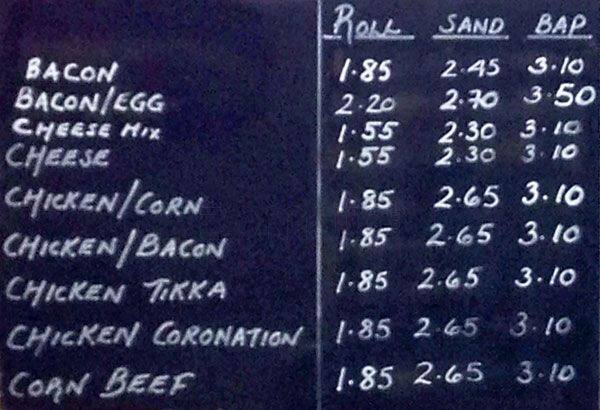 ROLL SAND BAP
BACON 1.85 2.45 3.10
BACON/EGG 2.20 2.70 3.50
CHEESE MIX 1.55 2.30 3.10
CHEESE 1.55 2.30 3.10
CHICKEN/CORN 1.85 2.65 3.10
CHICKEN/BACON 1.85 2.65 3.10
CHICKEN TIKKA 1.85 2.65 3.10
CHICKEN CORONATION 1.85 2.65 3.10
CORN BEEF 1.85 2.65 3.10